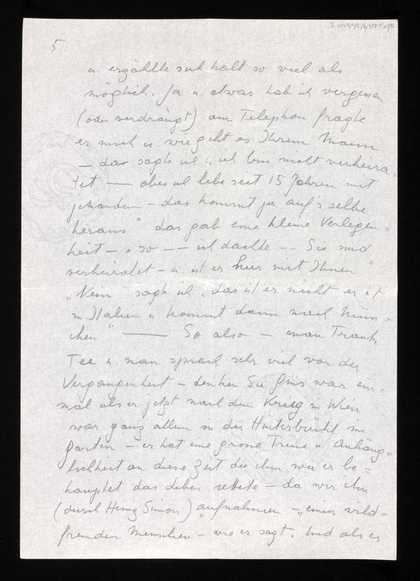 5
u. erzählte sich halt so viel als
möglich. Ja u. etwas hab ich vergessen
(oder verdrängt) am Telephon fragte
er mich u. wie geht es Ihrem Mann
— da sagte ich, ich bin nicht verheira-
tet — aber ich lebe seit 15 Jahren mit
jemanden — das kommt ja auf's selbe
heraus" das gab eine kleine Verlegen-
heit — so — ich dachte — Sie sind
verheiratet — u. ist er hier mit Ihnen"
„Nein" sagte ich, das ist er nicht er ist
in Italien u. kommt dann nach Mün-
chen" — So also — man trank
Tee u. man sprach sehr viel von der
Vergangenheit — denken Sie war ein-
mal als er jetzt nach dem Krieg in Wien
war ganz allein in der Hinterbrühl im
Garten — er hat eine grosse Treue u. Anhäng-
lichkeit an diese Zeit die ihm, wie er be-
hauptet das Leben rettete — da wir ihn
(durch Heinz Simon) aufnahmen — einen wild-
fremden Menschen — wie er sagt. Und als er